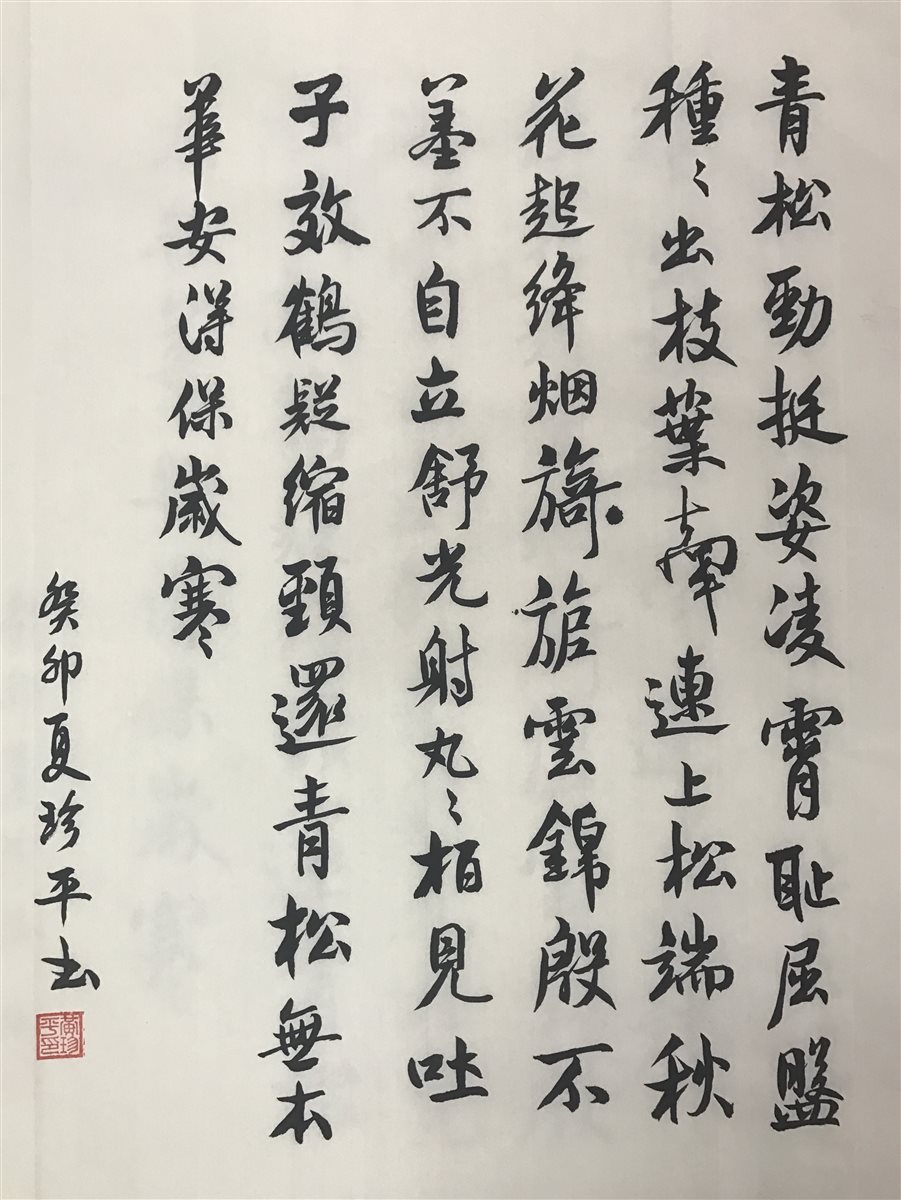 青松勁挺姿凌霄耻屈盤
種〻出枝葉牽連上松端秋
花起絳烟旖旎雲錦殷不
羞不自立舒光射丸〻柏見吐
子效鶴疑縮頸還青松無本
華安得保歲寒
癸卯夏珍平书
黄珍平印